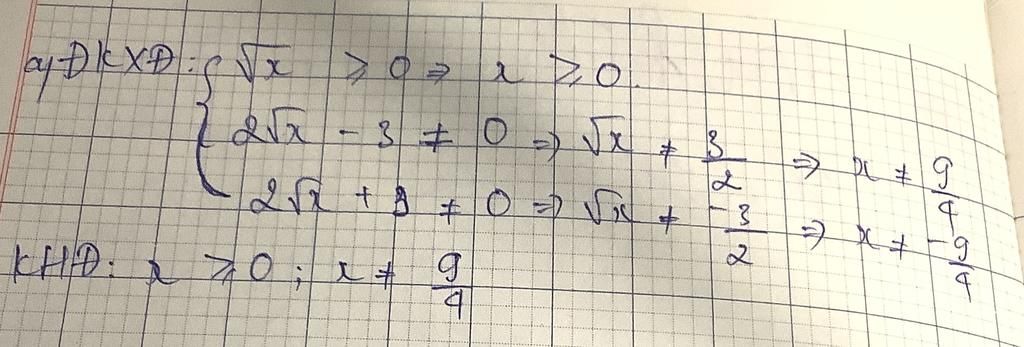 a, ĐKXĐ: { √x ≥ 0 ⇒ x ≥ 0.
2√x - 3 ≠ 0 ⇒ √x ≠ 3/2 ⇒ x ≠ 9/4
2√x + 3 ≠ 0 ⇒ √x ≠ -3/2 ⇒ x ≠ -9/4
KHĐ: x ≥ 0 ; x ≠ 9/4